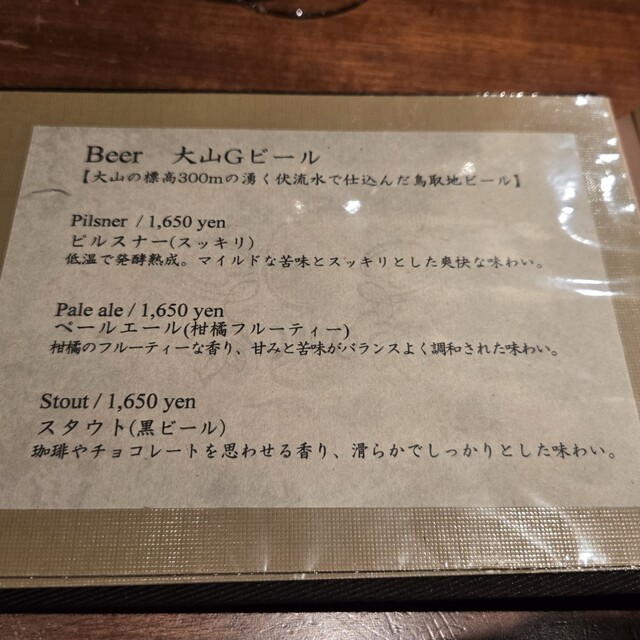 Beer 大山Gビール
【大山の標高300mの湧く伏流水で仕込んだ鳥取地ビール】
Pilsner / 1,650 yen
ピルスナー(スッキリ)
低温で発酵熟成。マイルドな苦味とスッキリとした爽快な味わい。
Pale ale / 1,650 yen
ペールエール(柑橘フルーティー)
柑橘のフルーティーな香り、甘みと苦味がバランスよく調和された味わい。
Stout / 1,650 yen
スタウト(黒ビール)
珈琲やチョコレートを思わせる香り、滑らかでしっかりとした味わい。